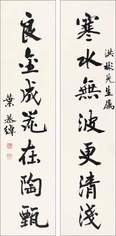 寒水無波更清淺
洪彬先生屬
良金成器在陶甄
葉恭綽